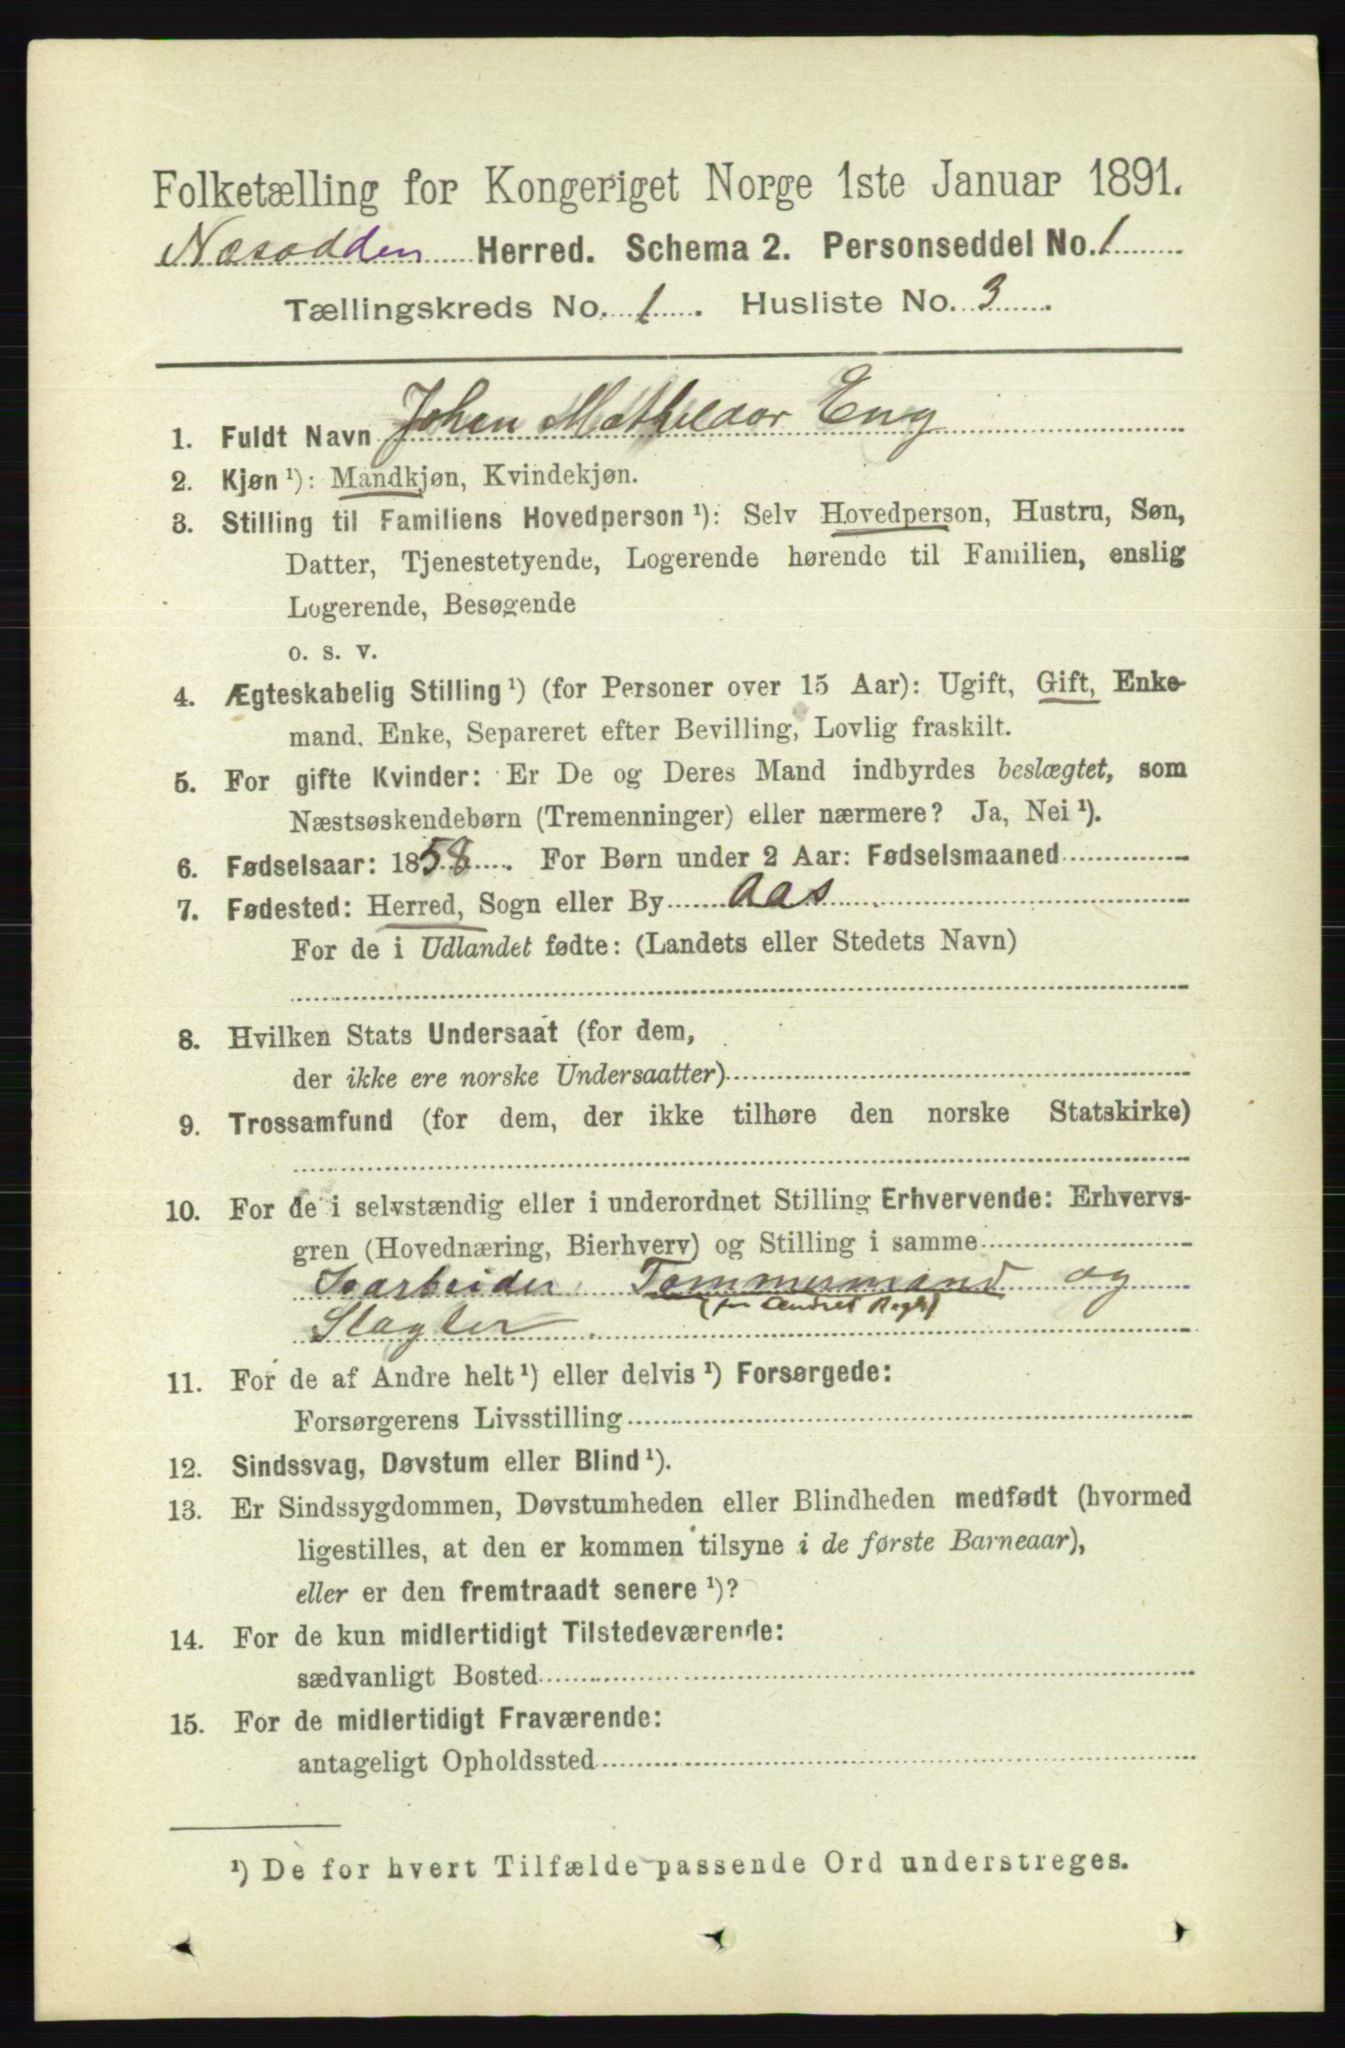 Folketælling for Kongeriget Norge 1ste Januar 1891.
Næsodden Herred. Schema 2. Personseddel No. 1
Tællingskreds No. 1. Husliste No. 3.
1. Fuldt Navn Johan Eng
2. Kjøn ¹): Mandkjøn, Kvindekjøn.
3. Stilling til Familiens Hovedperson ¹): Selv Hovedperson, Hustru, Søn,
Datter, Tjenestetyende, Logerende hørende til Familien, enslig
Logerende, Besøgende
o. s. v.
4. Ægteskabelig Stilling ¹) (for Personer over 15 Aar): Ugift, Gift, Enke-
mand, Enke, Separeret efter Bevilling, Lovlig fraskilt.
5. For gifte Kvinder: Er De og Deres Mand indbyrdes beslægtet, som
Næstsøskendebørn (Tremenninger) eller nærmere? Ja, Nei ¹).
6. Fødselsaar: 1858. For Børn under 2 Aar: Fødselsmaaned
7. Fødested: Herred, Sogn eller By Aas
For de i Udlandet fødte: (Landets eller Stedets Navn)
8. Hvilken Stats Undersaat (for dem,
der ikke ere norske Undersaatter)
9. Trossamfund (for dem, der ikke tilhøre den norske Statskirke)
10. For de i selvstændig eller i underordnet Stilling Erhvervende: Erhvervs-
gren (Hovednæring, Bierhverv) og Stilling i samme
Isarbeider Tømmermand og
(for Andres Regn)
Slagter
11. For de af Andre helt ¹) eller delvis ¹) Forsørgede:
Forsørgerens Livsstilling
12. Sindssvag, Døvstum eller Blind ¹).
13. Er Sindssygdommen, Døvstumheden eller Blindheden medfødt (hvormed
ligestilles, at den er kommen tilsyne i de første Barneaar),
eller er den fremtraadt senere ¹)?
14. For de kun midlertidigt Tilstedeværende:
sædvanligt Bosted
15. For de midlertidigt Fraværende:
antageligt Opholdssted
¹) De for hvert Tilfælde passende Ord understreges.